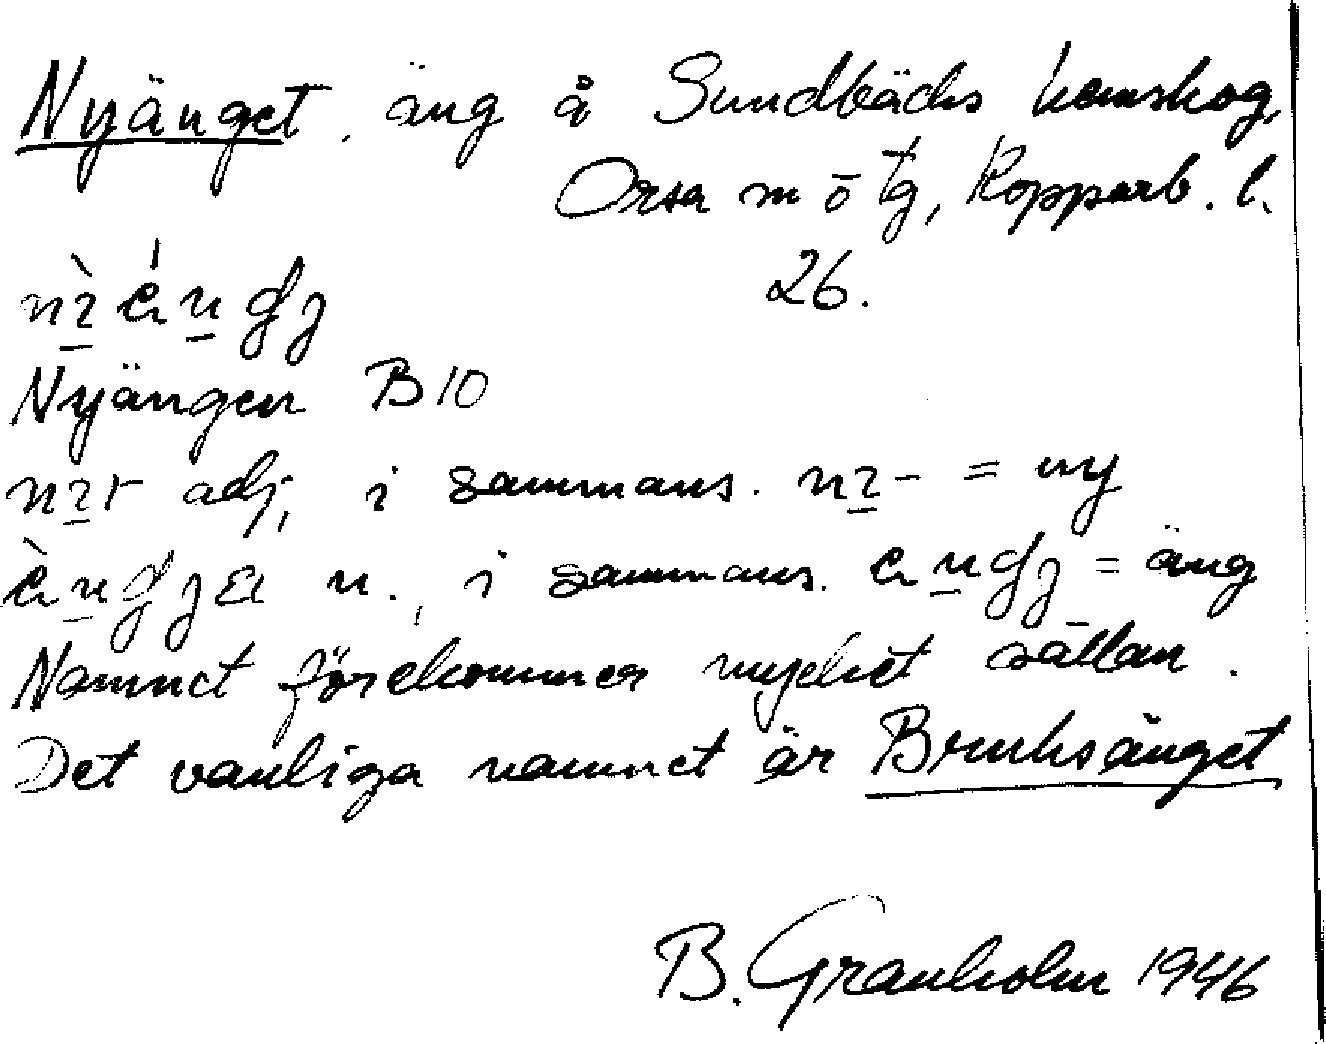 Nyänget, äng å Sundbäcks hemskog,
Orsa m o tg, Kopparb. l.
26.
Nyängen B 10
adj, i sammans. = ny
n., i sammans. = äng
Namnet förekommer mycket sällan.
Det vanliga namnet är Bruksänget
B. Granholm 1946